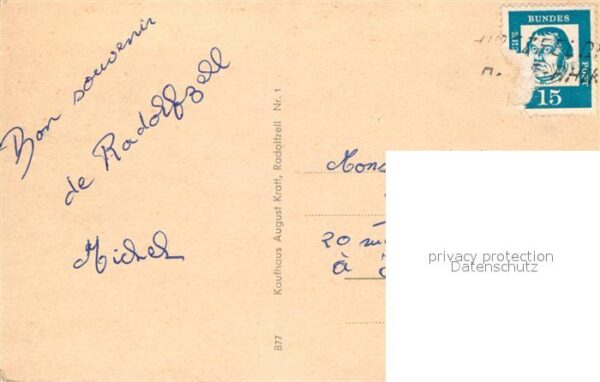 Bon souvenir
de Radolfzell
Michel
B77 Kaufhaus August Kratt, Radolfzell Nr. 1
BUNDES
POST
15
20
à
privacy protection
Datenschutz